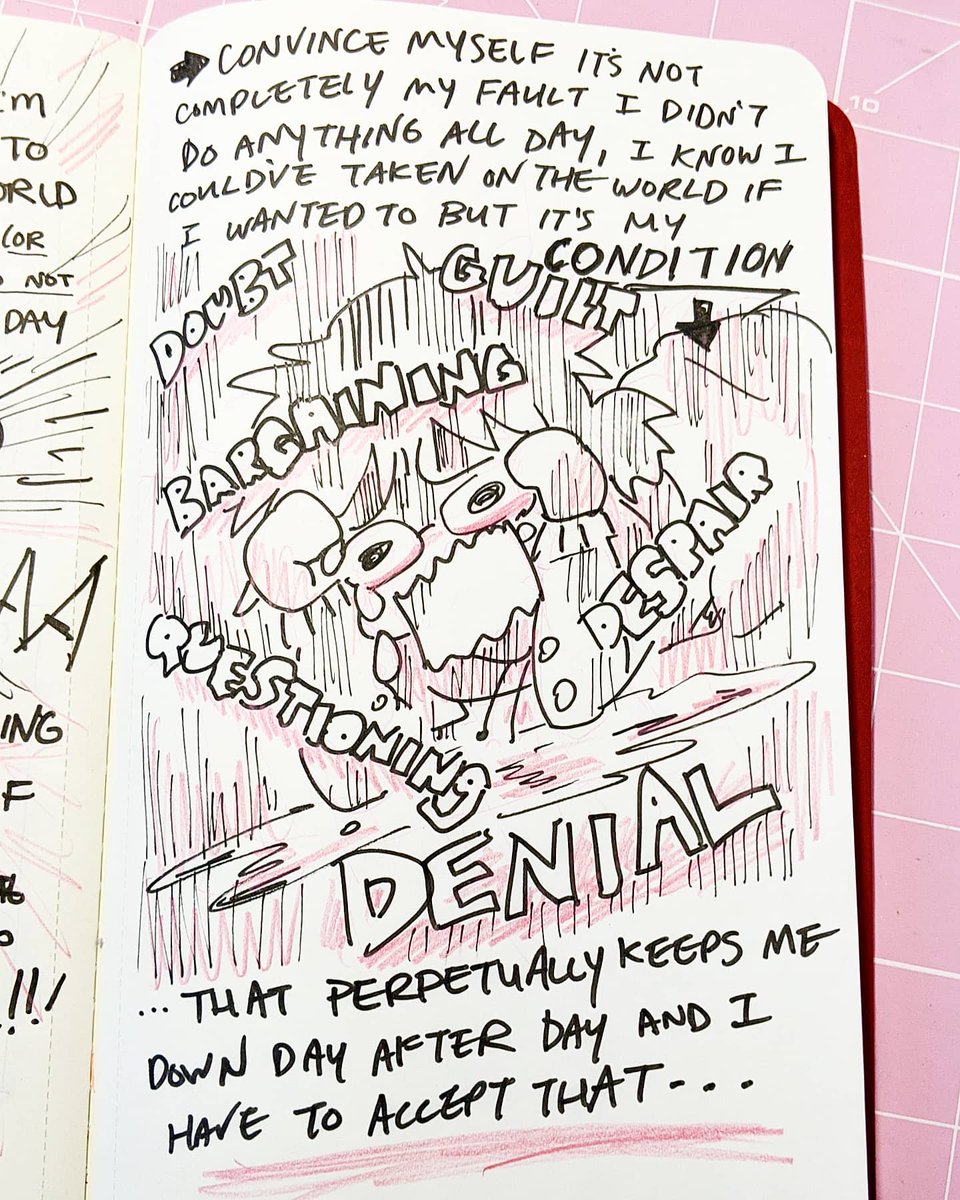 I'M
TO
ORLD
(OR
NOT
DAY
AA
ING
F
!!!
➡ CONVINCE MYSELF IT'S NOT
COMPLETELY MY FAULT I DIDN'T
DO ANYTHING ALL DAY, I KNOW I
COULD'VE TAKEN ON THE WORLD IF
I WANTED TO BUT IT'S MY
CONDITION
DOUBT
GUILT
BARGAINING
DESPAIR
QUESTIONING
DENIAL
...THAT PERPETUALLY KEEPS ME
DOWN DAY AFTER DAY AND I
HAVE TO ACCEPT THAT - . . .
10